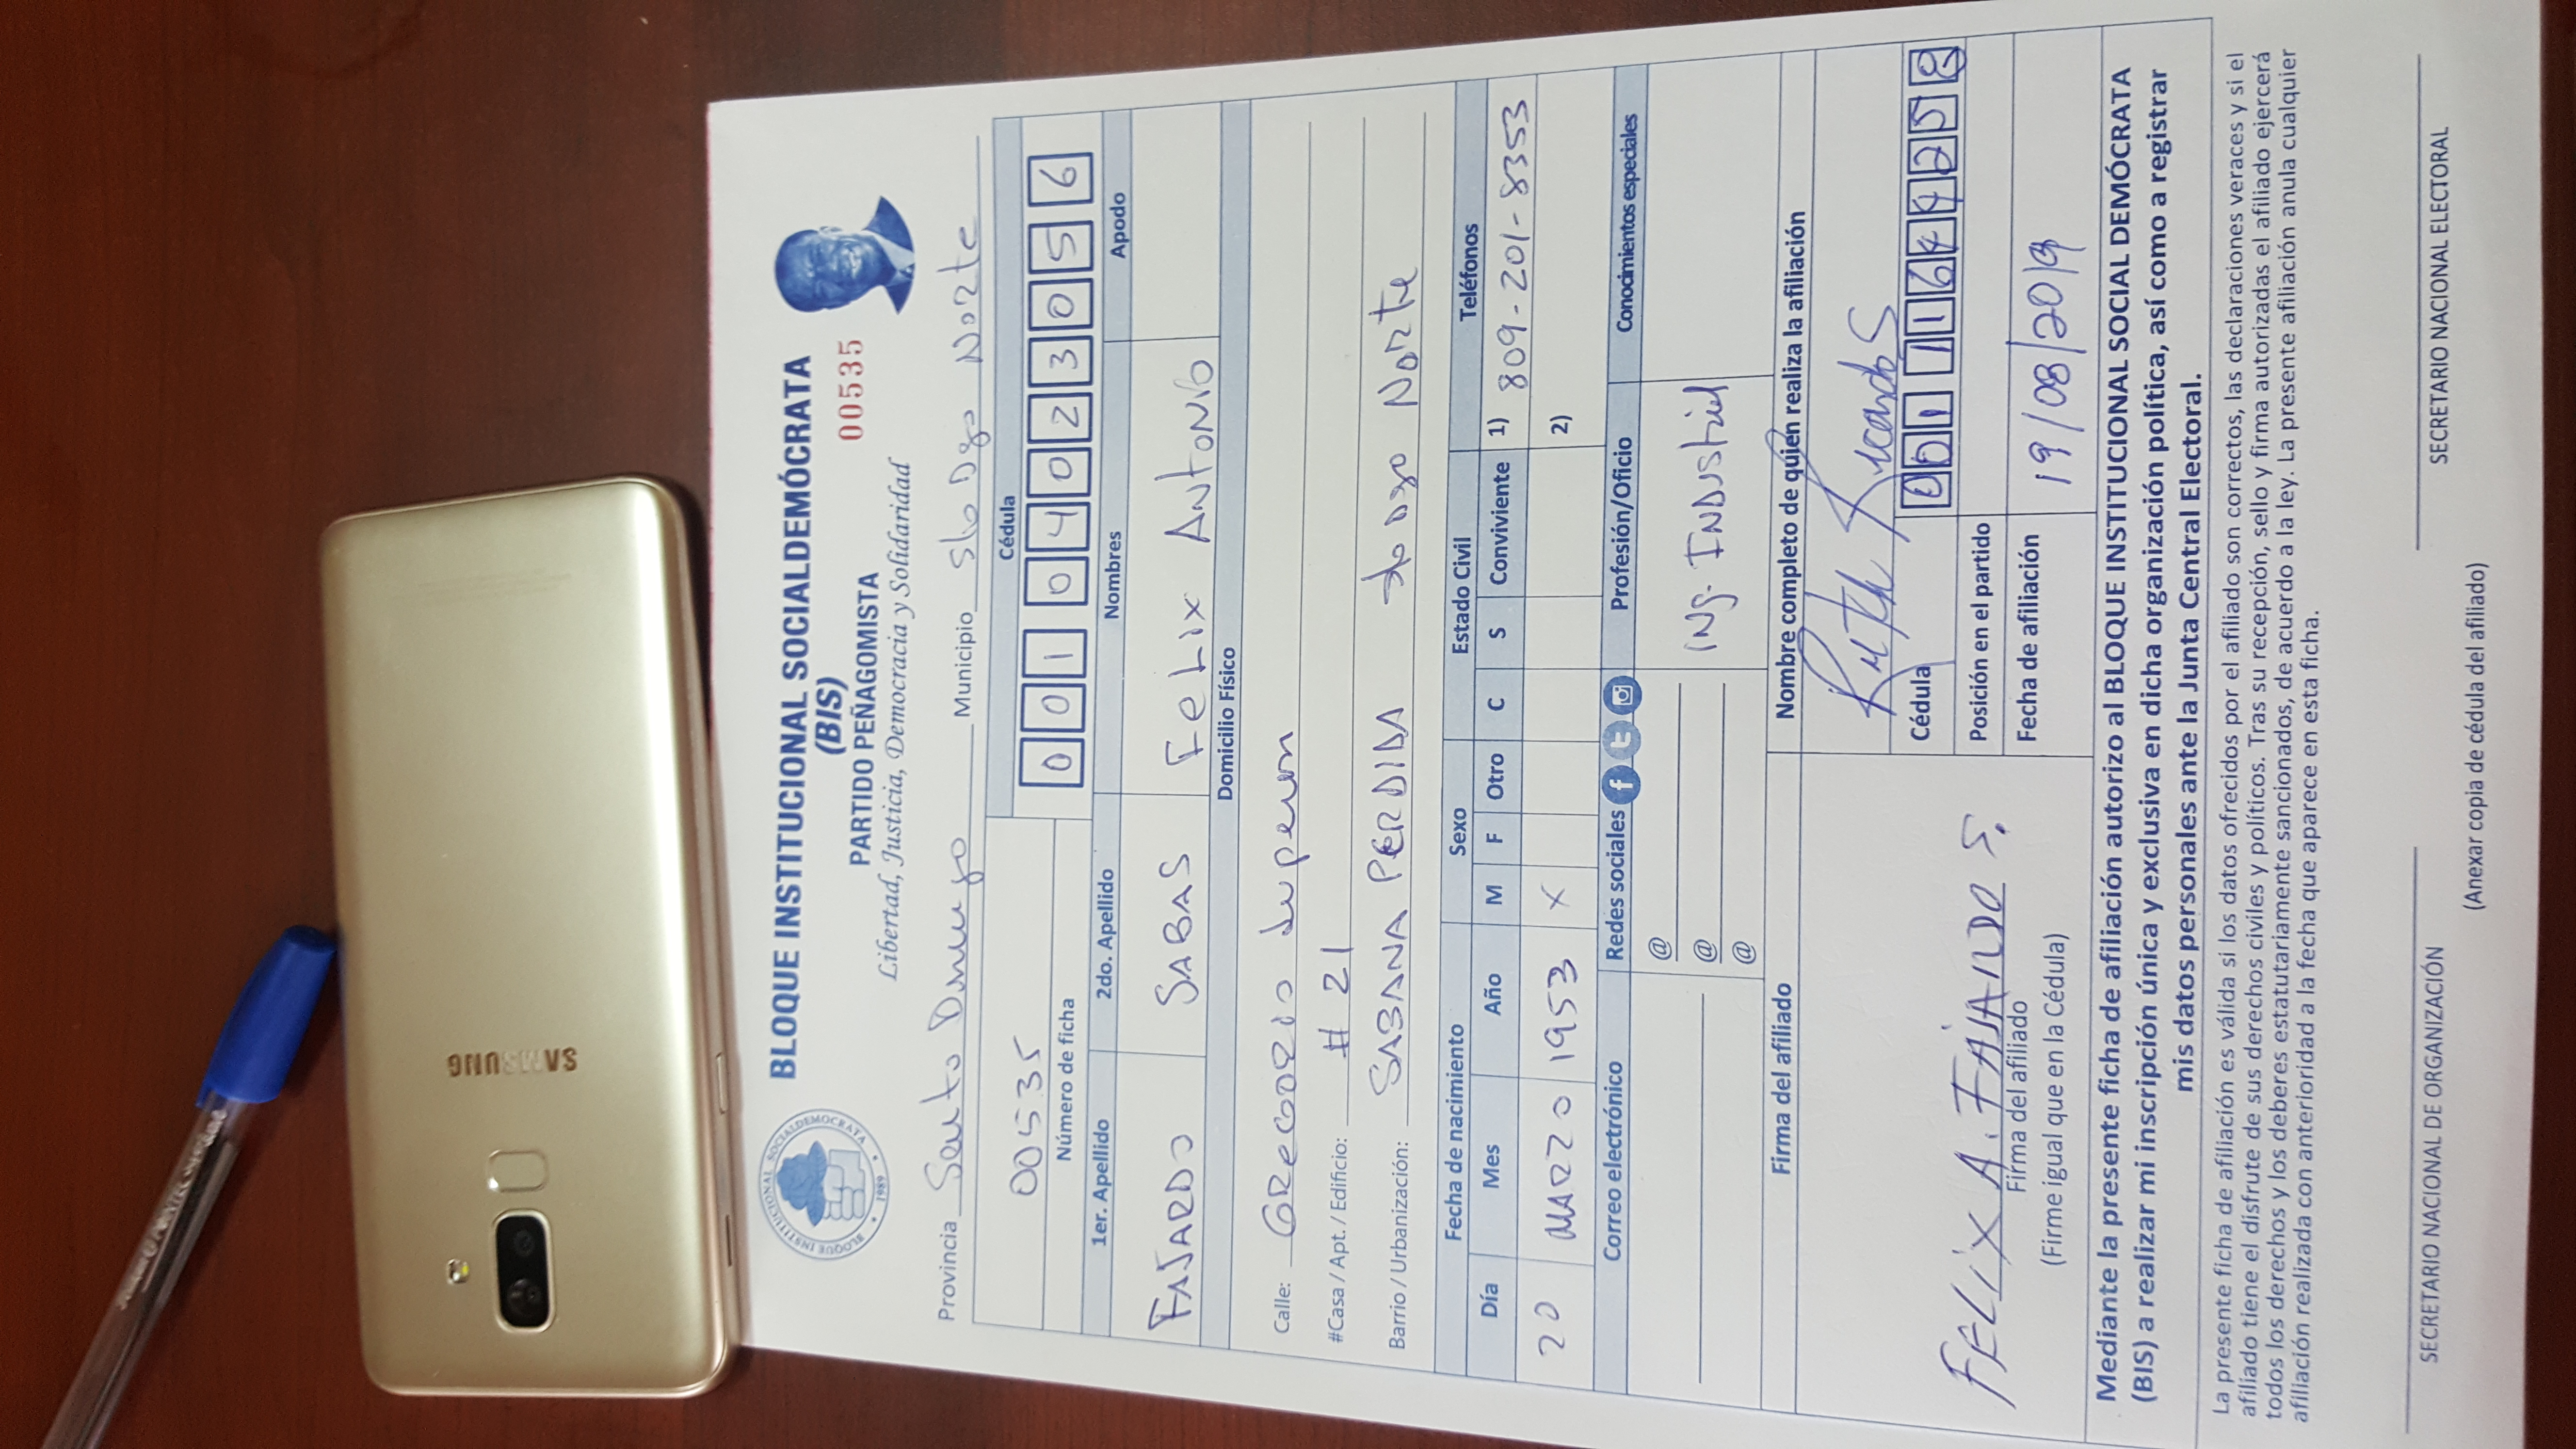 SAMSUNG
BLOQUE INSTITUCIONAL SOCIALDEMÓCRATA
(BIS)
PARTIDO PEÑAGOMISTA
00535
Libertad, Justicia, Democracia y Solidaridad
BLOQUE INSTITUCIONAL SOCIALDEMOCRATA
1989
Provincia Santo Domingo Municipio Sto Dgo Norte
00535
Número de ficha
Cédula
0 0 1 0 4 0 2 3 0 5 6
1er. Apellido 2do. Apellido Nombres Apodo
FAJARDO SABAS FELIX ANTONIO
Domicilio Físico
Calle: GREGORIO Luperon
#Casa / Apt. / Edificio: # 21
Barrio / Urbanización: SABANA PERDIDA Sto Dgo Norte
Fecha de nacimiento Sexo Estado Civil Teléfonos
Día Mes Año M F Otro C S Conviviente 1) 809-201-8353
20 MARZO 1953 X 2)
Correo electrónico Redes sociales Profesión/Oficio Conocimientos especiales
@
@
@
ING. INDUSTRIAL
Firma del afiliado Nombre completo de quien realiza la afiliación
Ruth
Cédula 0 0 1 1 6 4 4 2 5 8
Posición en el partido
FELIX A. FAJARDO S.
Firma del afiliado
(Firme igual que en la Cédula)
Fecha de afiliación 19/08/2019
Mediante la presente ficha de afiliación autorizo al BLOQUE INSTITUCIONAL SOCIAL DEMÓCRATA
(BIS) a realizar mi inscripción única y exclusiva en dicha organización política, así como a registrar
mis datos personales ante la Junta Central Electoral.
La presente ficha de afiliación es válida si los datos ofrecidos por el afiliado son correctos, las declaraciones veraces y si el
afiliado tiene el disfrute de sus derechos civiles y políticos. Tras su recepción, sello y firma autorizadas el afiliado ejercerá
todos los derechos y los deberes estatutariamente sancionados, de acuerdo a la ley. La presente afiliación anula cualquier
afiliación realizada con anterioridad a la fecha que aparece en esta ficha.
SECRETARIO NACIONAL DE ORGANIZACIÓN SECRETARIO NACIONAL ELECTORAL
(Anexar copia de cédula del afiliado)